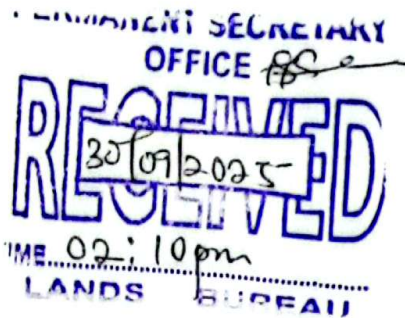 PERMANENT SECRETARY
OFFICE
RECEIVED
30/09/2025
TIME 02:10pm
LANDS BUREAU